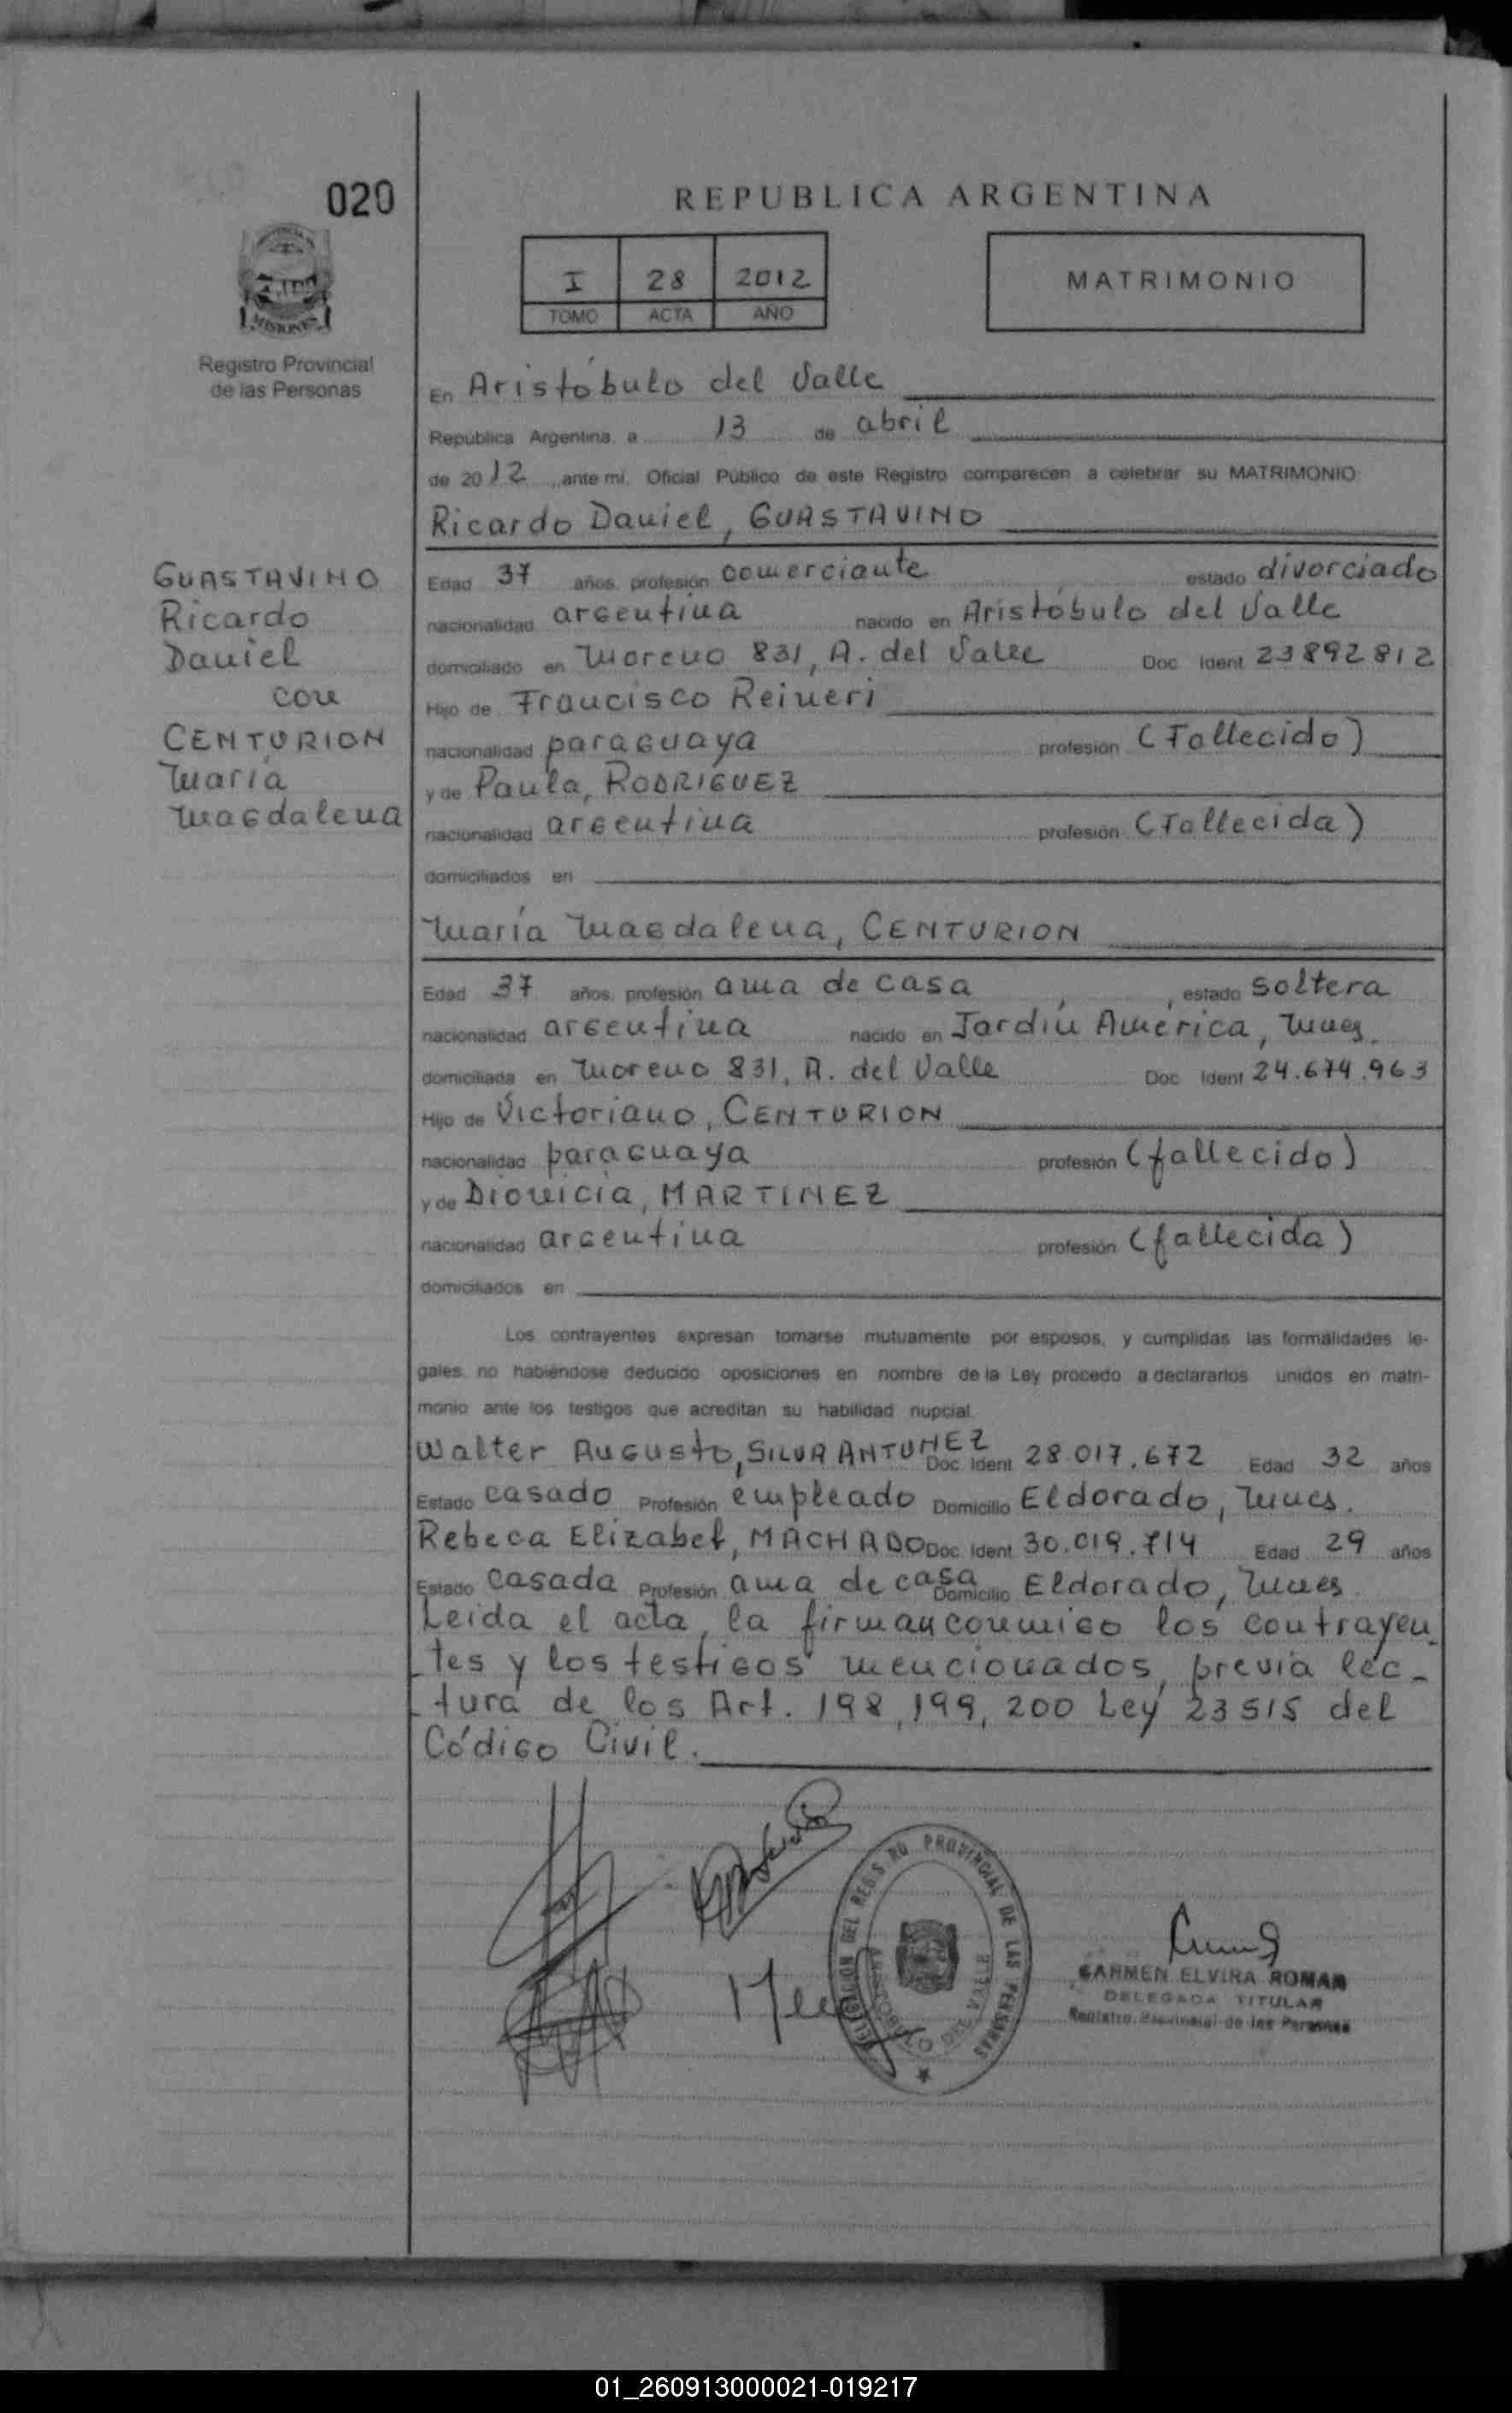 020
REPUBLICA ARGENTINA
MISIONES
Registro Provincial
de las Personas
I 28 2012
TOMO ACTA AÑO
MATRIMONIO
En Aristóbulo del Valle
República Argentina, a 13 de abril
de 2012 ante mí, Oficial Público de este Registro comparecen a celebrar su MATRIMONIO
Ricardo Daniel, GUASTAVINO
GUASTAVINO
Ricardo
Daniel
con
CENTURION
María
Magdalena
Edad 37 años, profesión comerciante estado divorciado
nacionalidad argentina nacido en Aristóbulo del Valle
domiciliado en Moreno 831, A. del Valle Doc Ident 23892812
Hijo de Francisco Reineri
nacionalidad paraguaya profesión (Fallecido)
y de Paula, RODRIGUEZ
nacionalidad argentina profesión (Fallecida)
domiciliados en
María Magdalena, CENTURION
Edad 37 años, profesión ama de casa, estado soltera
nacionalidad argentina nacido en Jardín América, Mnes.
domiciliada en Moreno 831, A. del Valle Doc Ident 24.674.963
Hijo de Victoriano, CENTURION
nacionalidad paraguaya profesión (fallecido)
y de Dionicia, MARTINEZ
nacionalidad argentina profesión (fallecida)
domiciliados en
Los contrayentes expresan tomarse mutuamente por esposos, y cumplidas las formalidades le-
gales, no habiéndose deducido oposiciones en nombre de la Ley procedo a declararlos unidos en matri-
monio ante los testigos que acreditan su habilidad nupcial.
Walter Augusto, SILVA ANTUNEZ Doc. Ident 28.017.672 Edad 32 años
Estado casado Profesión empleado Domicilio Eldorado, Mnes.
Rebeca Elizabet, MACHADO Doc Ident 30.019.714 Edad 29 años
Estado casada Profesión ama de casa Domicilio Eldorado, Mnes.
Leida el acta, la firman conmigo los contrayen
tes y los testigos mencionados, previa lec-
tura de los Art. 198, 199, 200 Ley 23515 del
Código Civil.
DELEGACION DEL REGISTRO PROVINCIAL DE LAS PERSONAS
ARISTOBULO DEL VALLE
CARMEN ELVIRA ROMAN
DELEGADA TITULAR
Registro Provincial de las Personas
01_260913000021-019217